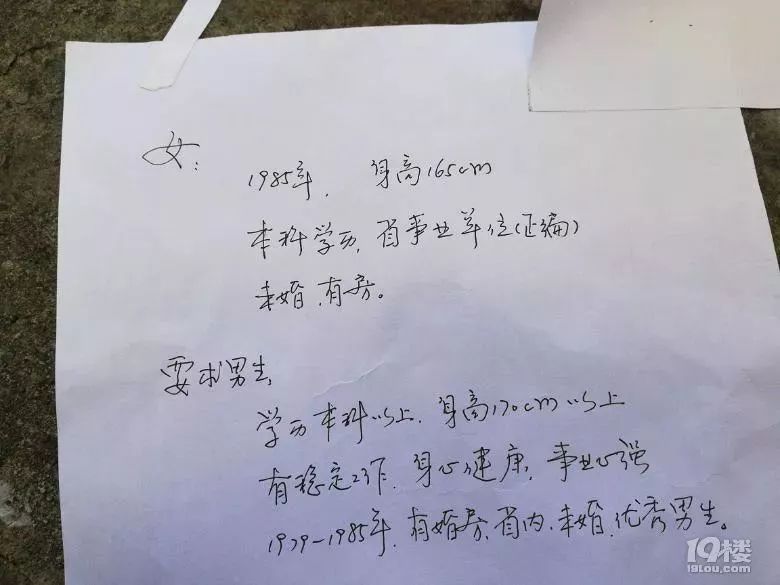 女:
1985年, 身高165cm
本科学历, 省事业单位(正编)
未婚, 有房。
要求男生:
学历本科以上, 身高170cm以上
有稳定工作, 身心健康, 事业心强
1979-1985年, 有婚房, 省内, 未婚, 优秀男生。
19楼
19lou.com